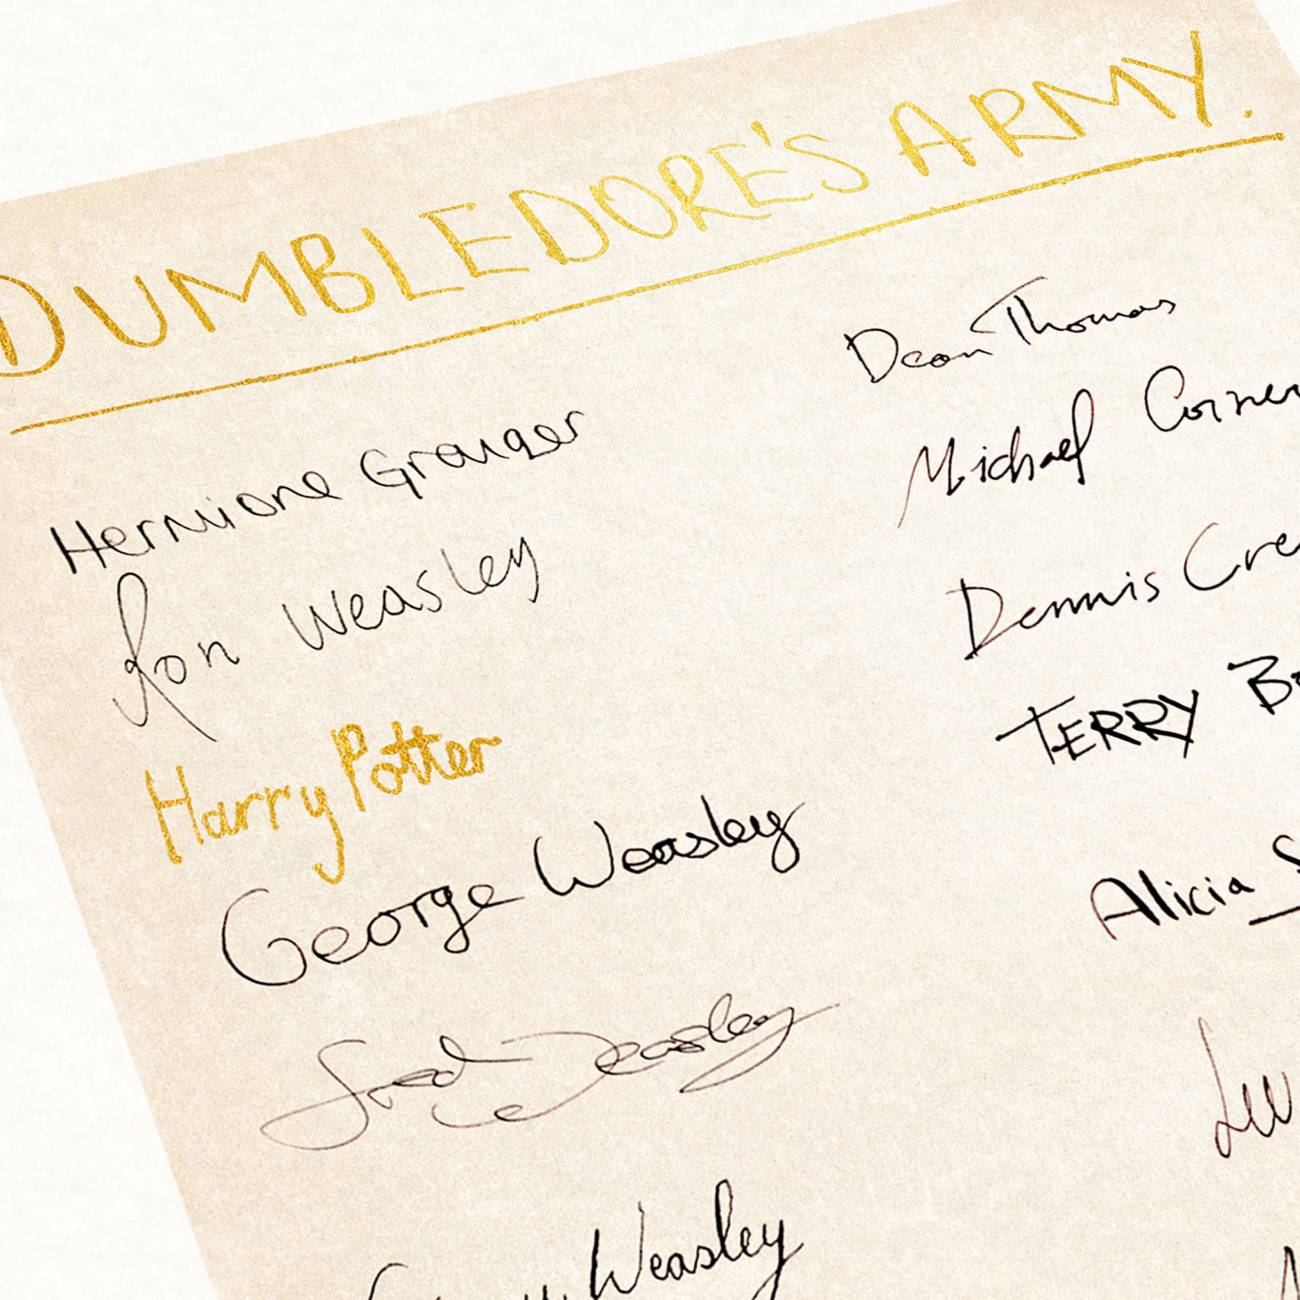 DUMBLEDORE'S ARMY.
Hermione Granger
Ron Weasley
Harry Potter
George Weasley
Fred Weasley
Weasley
Dean Thomas
Michael Corner
Dennis
TERRY
Alicia